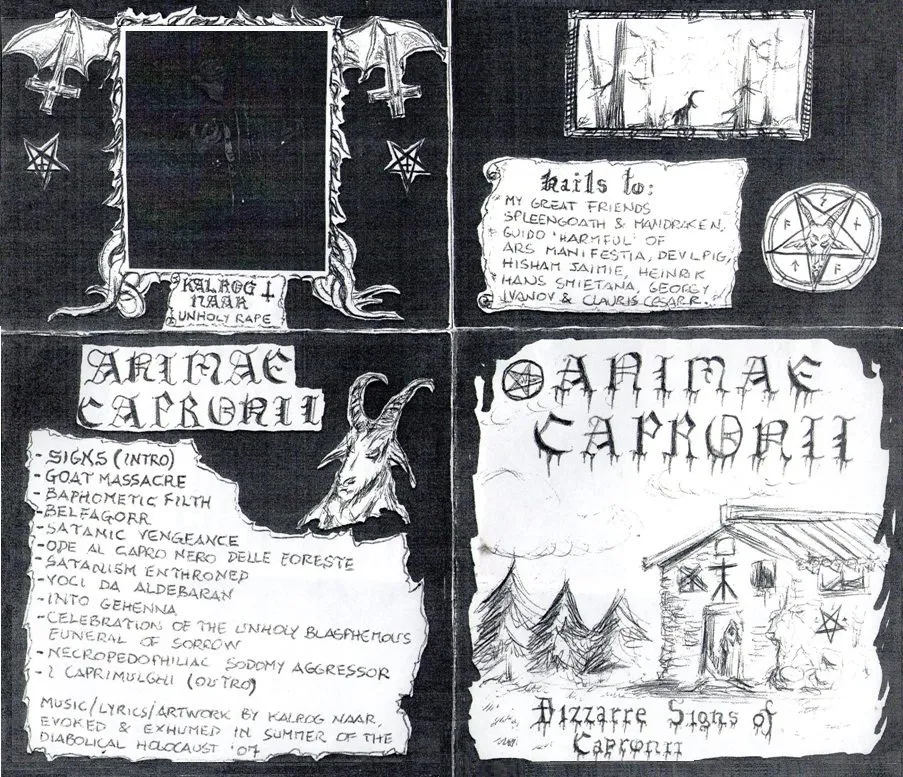 KALROG
NAAR
UNHOLY RAPE
Hails to:
MY GREAT FRIENDS
SPLEENGOATH & MANDRAKEN,
GUIDO 'HARMFUL' OF
ARS MANIFESTIA, DEVLPIG,
HISHAM JAIMIE, HEINRIK
HANS SMIETANA, GEORGY
IVANOV & CLAURIS CESARR.
ANIMAE
CAPRONII
- SIGNS (INTRO)
- GOAT MASSACRE
- BAPHOMETIC FILTH
- BELFAGORR
- SATANIC VENGEANCE
- ODE AL CAPRO NERO DELLE FORESTE
- SATANISM ENTHRONED
- VOCI DA ALDEBARAN
- INTO GEHENNA
- CELEBRATION OF THE UNHOLY BLASPHEMOUS
FUNERAL OF SORROW
- NECROPEDOPHILIAC SODOMY AGGRESSOR
- I CAPRIMULGHI (OUTRO)
MUSIC/LYRICS/ARTWORK BY KALROG NAAR,
EVOKED & EXHUMED IN SUMMER OF THE
DIABOLICAL HOLOCAUST '07
ANIMAE
CAPRONII
Bizzarre Signs of
Capronii